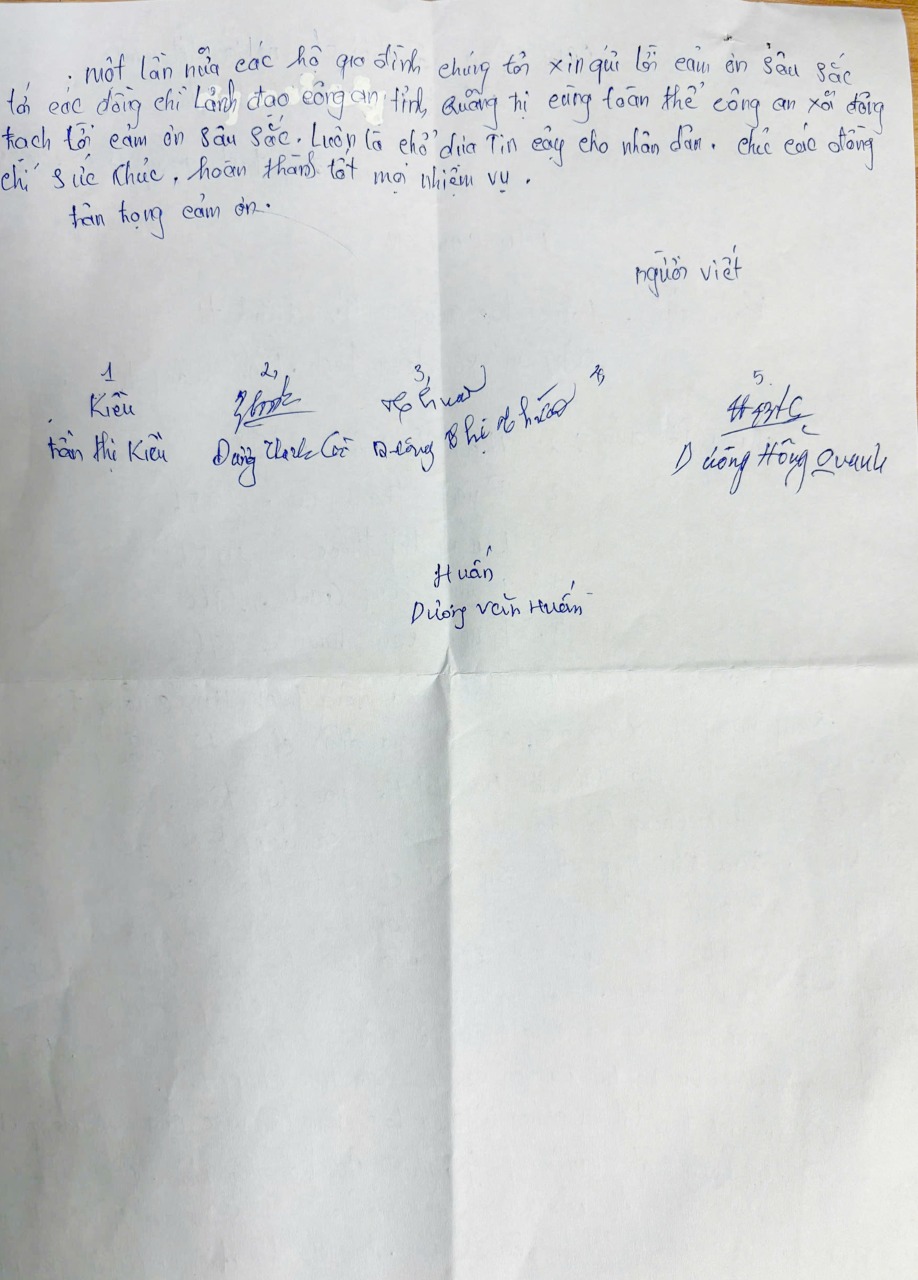 Một lần nữa các hộ gia đình chúng tôi xin gửi lời cảm ơn sâu sắc
tới các đồng chí Lãnh đạo công an tỉnh, Quảng trị cùng toàn thể công an xã đông
trạch lời cảm ơn sâu sắc. Luôn là chỗ dựa Tin cậy cho nhân dân. chúc các đồng
chí sức khỏe, hoàn thành tốt mọi nhiệm vụ.
trân trọng cảm ơn.
người viết
1 2, 3, 4, 5.
Kiều
trần thị Kiều Dương Hồng Quanh
Huấn
Dương Văn Huấn